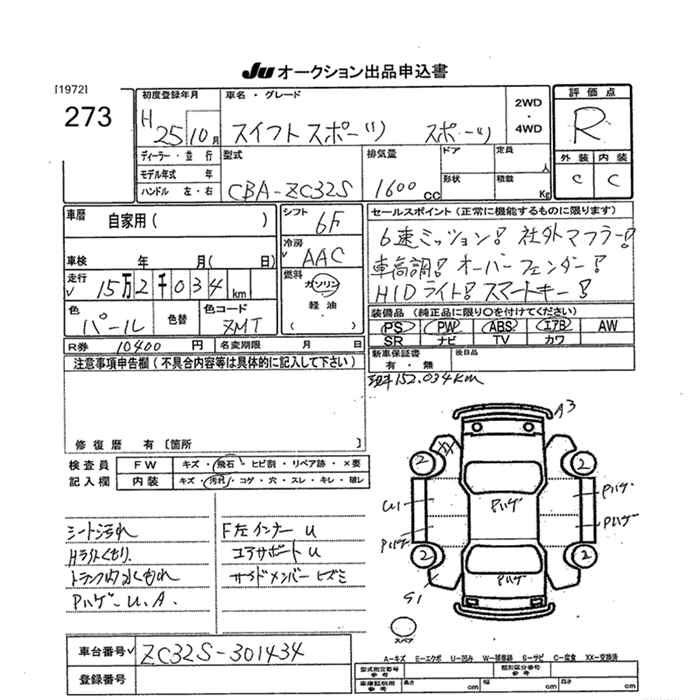 JU オークション出品申込書
[1972]
273
初度登録年月
H 25 10 月
車名・グレード
スイフトスポーツ スポーツ
2WD
・
4WD
評価点
R
外装 内装
C C
ディーラー・並 行
モデル年式 年
ハンドル 左・右
型式
CBA-ZC32S
排気量
1600 cc
ドア
形状
定員
人
積載
Kg
車暦 自家用( )
車検 年 月( 日)
走行 15万2千034 km
色 パール 色替 色コード ZMT
シフト 6F
冷房 AAC
燃料
ガソリン
・
軽油
・
( )
セールスポイント(正常に機能するものに限ります)
6速ミッション! 社外マフラー!
車高調! オーバーフェンダー!
HIDライト! スマートキー!
装備品 (純正品に限り○を付けてください)
PS PW ABS エアB AW
SR ナビ TV カワ
R券 10400 円 名変期限 月 日
新車保証書 有・無 後日品
注意事項申告欄(不具合内容等は具体的に記入して下さい)
152.034km
修復歴 有[箇所 ]
検査員 FW キズ・飛石・ヒビ割・リペア跡・×要
記入欄 内装 キズ・汚れ・コゲ・穴・スレ・キレ・破レ
A3
2 2
U1
Pハゲ
Pハゲ
Pハゲ
Pハゲ
Pハゲ
2 2
G1
スペア
シート汚れ
Hライトくもり
トランク内水もれ
Pハゲ-U.A.
F左インナーU
コアサポートU
サイドメンバーヒズミ
車台番号 ZC32S-301434
登録番号
A-キズ E-エクボ U-凹み W-補修跡 S-サビ C-腐食 XX-交換済
型式指定番号 参考
類別区分番号 参考
車庫証明用 参考 長さ cm 幅 cm 高さ cm